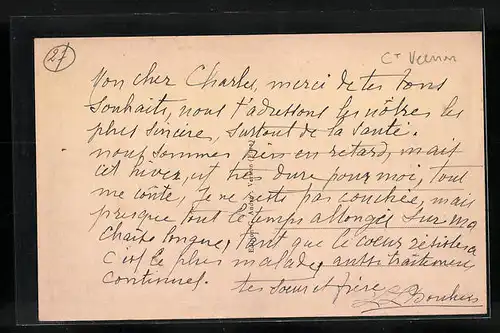 27
Ct Vernon
Mon cher Charles, merci de tes bons
souhaits, nous t'adressons les nôtres les
plus sincères, surtout de la santé.
nous sommes bien en retard, mais
cet hiver, est très dure pour moi, tout
me coûte, je ne reste pas couchée, mais
presque tout le temps allongée sur ma
chaise longue, tant que le coeur résistera
c'est le plus malade, aussi traitement
continuel. tes soeur et frère